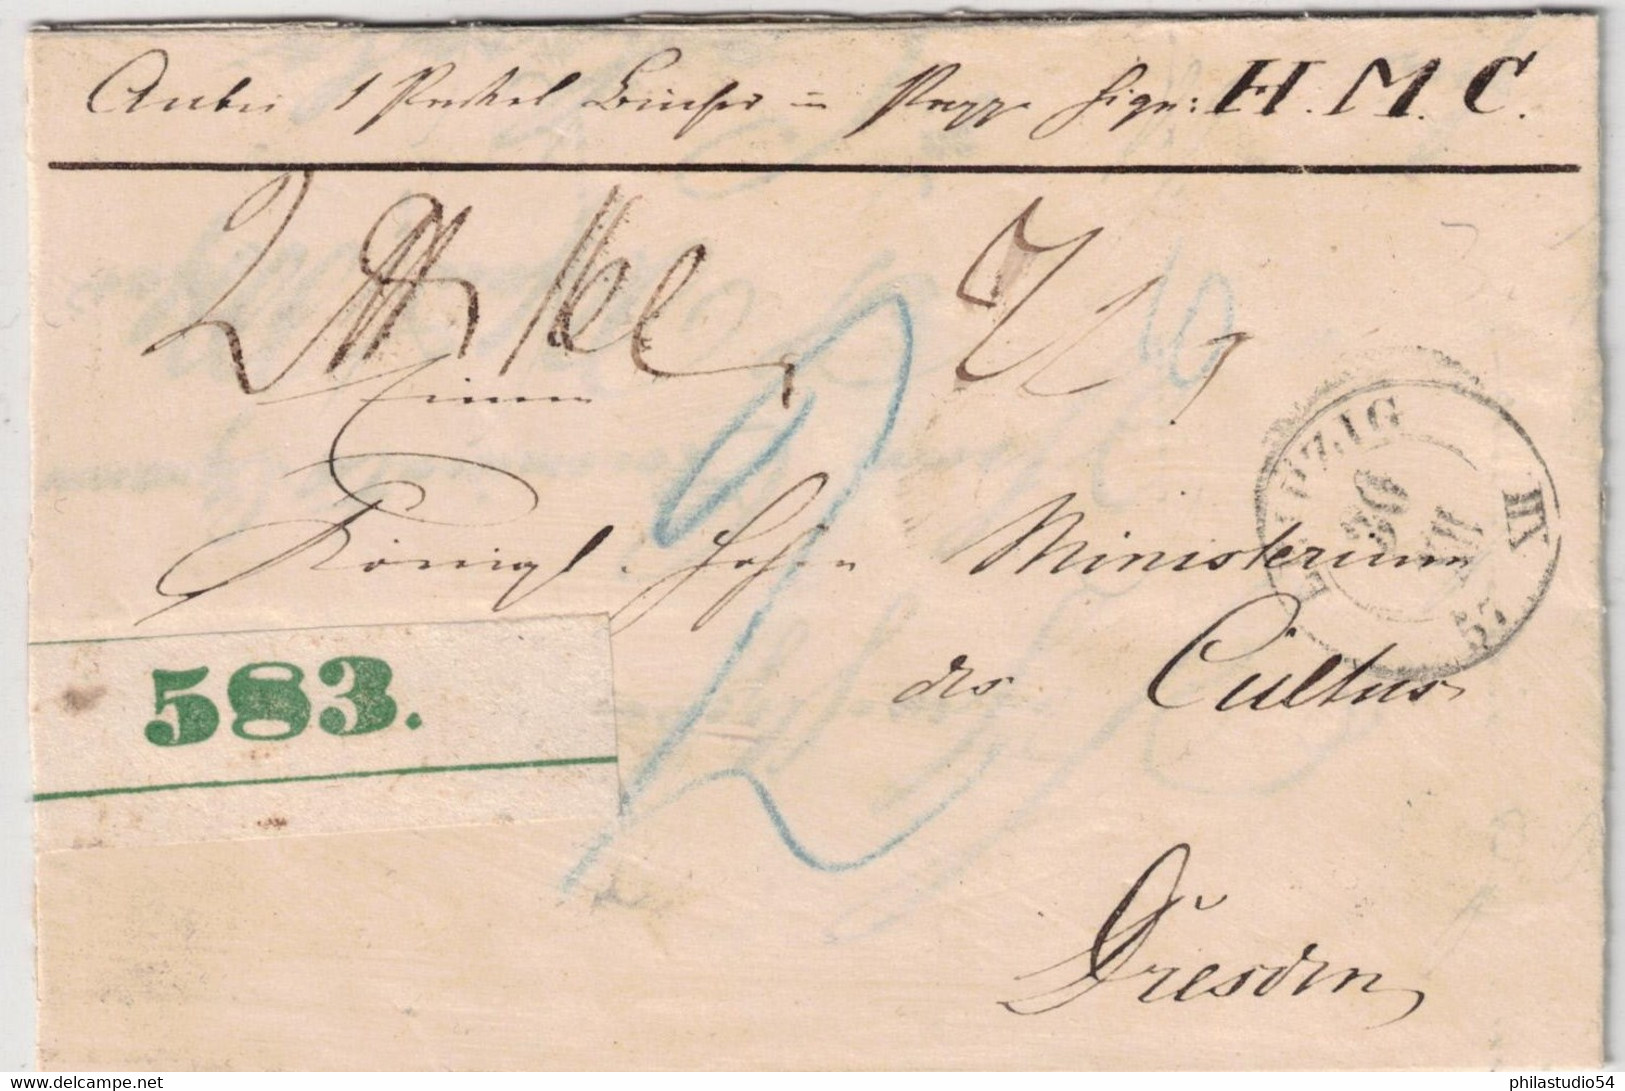 Anbei 1 Packet Bücher in Pappe sign: H. M. C.
Einem
Königl. Hohen Ministerium
des Cultus
Dresden
LEIPZIG
20
XII
57
583.
delcampe.net
philastudio54